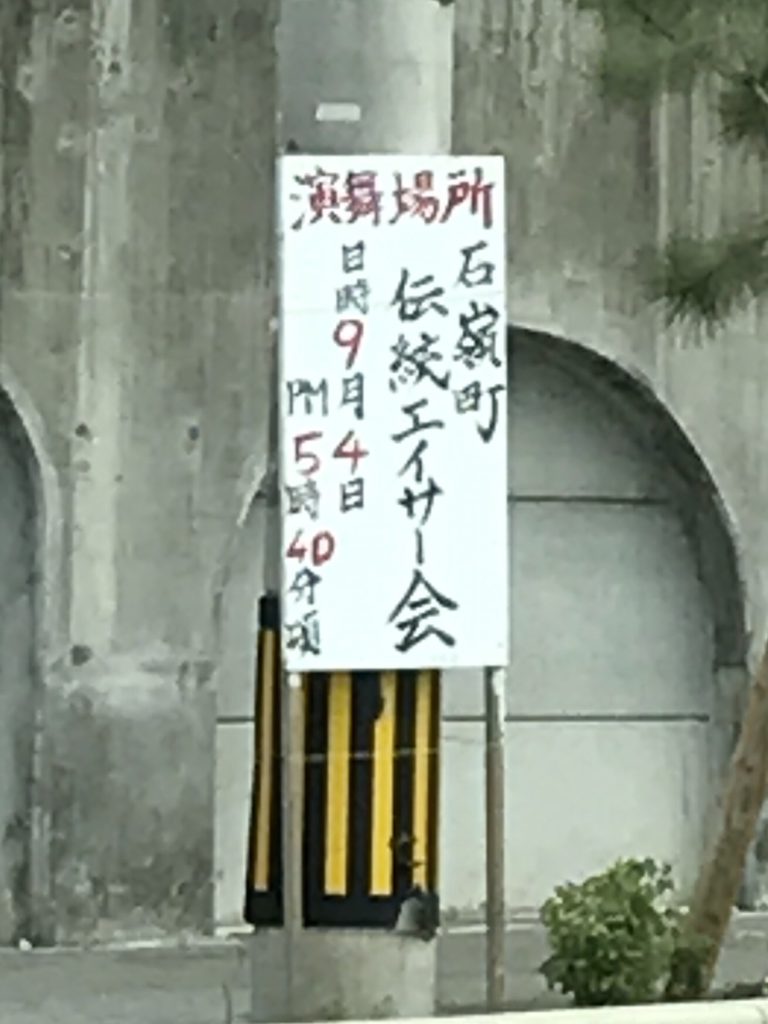 演舞場所
石嶺町
伝統エイサー会
日時9月4日
PM5時40分頃